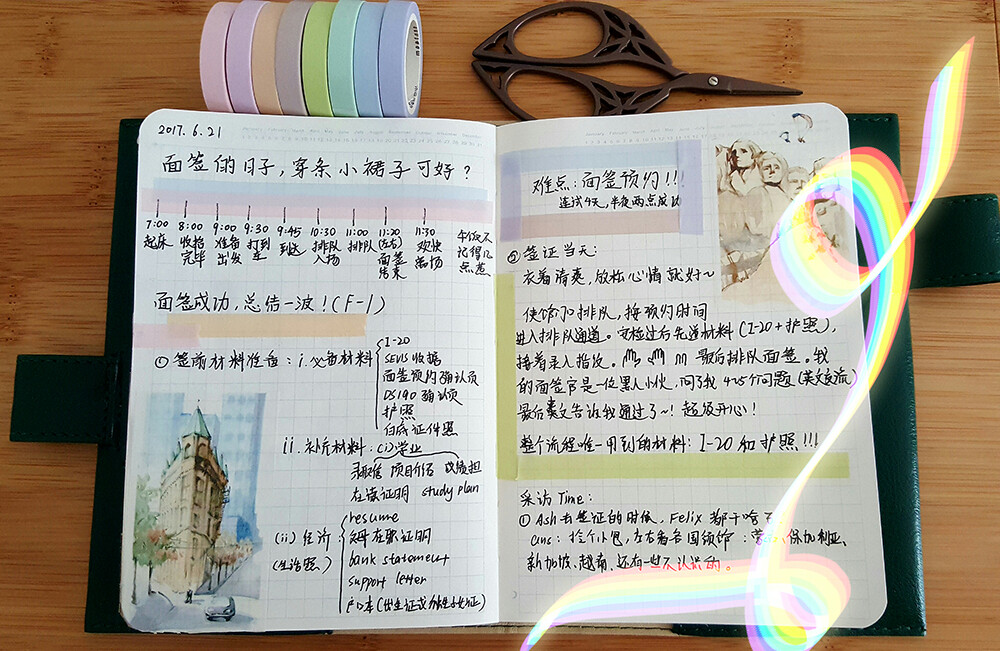 2017.6.21
面签的日子，穿条小裙子可好？
7:00 8:00 9:00 9:30 9:45 10:30 11:00 11:20 11:30
起床 收拾完毕 准备出发 打到车 到达 排队入场 排队 (左右)面签结束 欢快离场
面签成功，总结一波！(F-1)
① 签前材料准备：i.必备材料
I-20
SEVIS 收据
面签预约确认页
DS160 确认页
护照
白底证件照
ii. 补充材料：(i)学业
录取信 项目介绍 成绩担
在读证明 study plan
(ii) 经济
(生活照)
resume
父母在职证明
bank statement
support letter
户口本(出生证或独生子女证)
难点：面签预约!!!
连试4天，半夜两点成功
② 签证当天：
衣着清爽，放松心情就好~
使馆外排队，按预约时间
进入排队通道。安检过后先递材料(I-20+护照)，
接着录入指纹。最后排队面签。我
的面签官是一位黑人小伙，问了我4或5个问题(英文交流)
最后英文告诉我通过了~! 超级开心!
整个流程唯一用到的材料：I-20 和护照!!!
采访Time：
① Ash去签证的时候，Felix 都干啥
ans：拎个小包，左右看各国领馆：保加利亚、
新加坡、越南、还有一些不认识的。